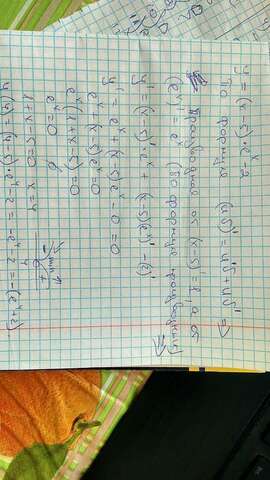 y = (x-5)·eˣ-2
По формуле (uб)' = u'б + uб' ⇒
Производная от (x-5)' = 1, а от
(eˣ)' = eˣ (по формуле производных)
⇒
y' = (x-5)'·eˣ + (x-5)(eˣ)' - (2)'
y' = eˣ + (x-5)eˣ - 0 = 0
eˣ + (x-5)eˣ = 0
eˣ(1+x-5) = 0
eˣ = 0
1+x-5 = 0 x = 4
min
- +
4
y(4) = (4-5)·eˣ-2 = -e⁴-2 = -(e⁴+2).